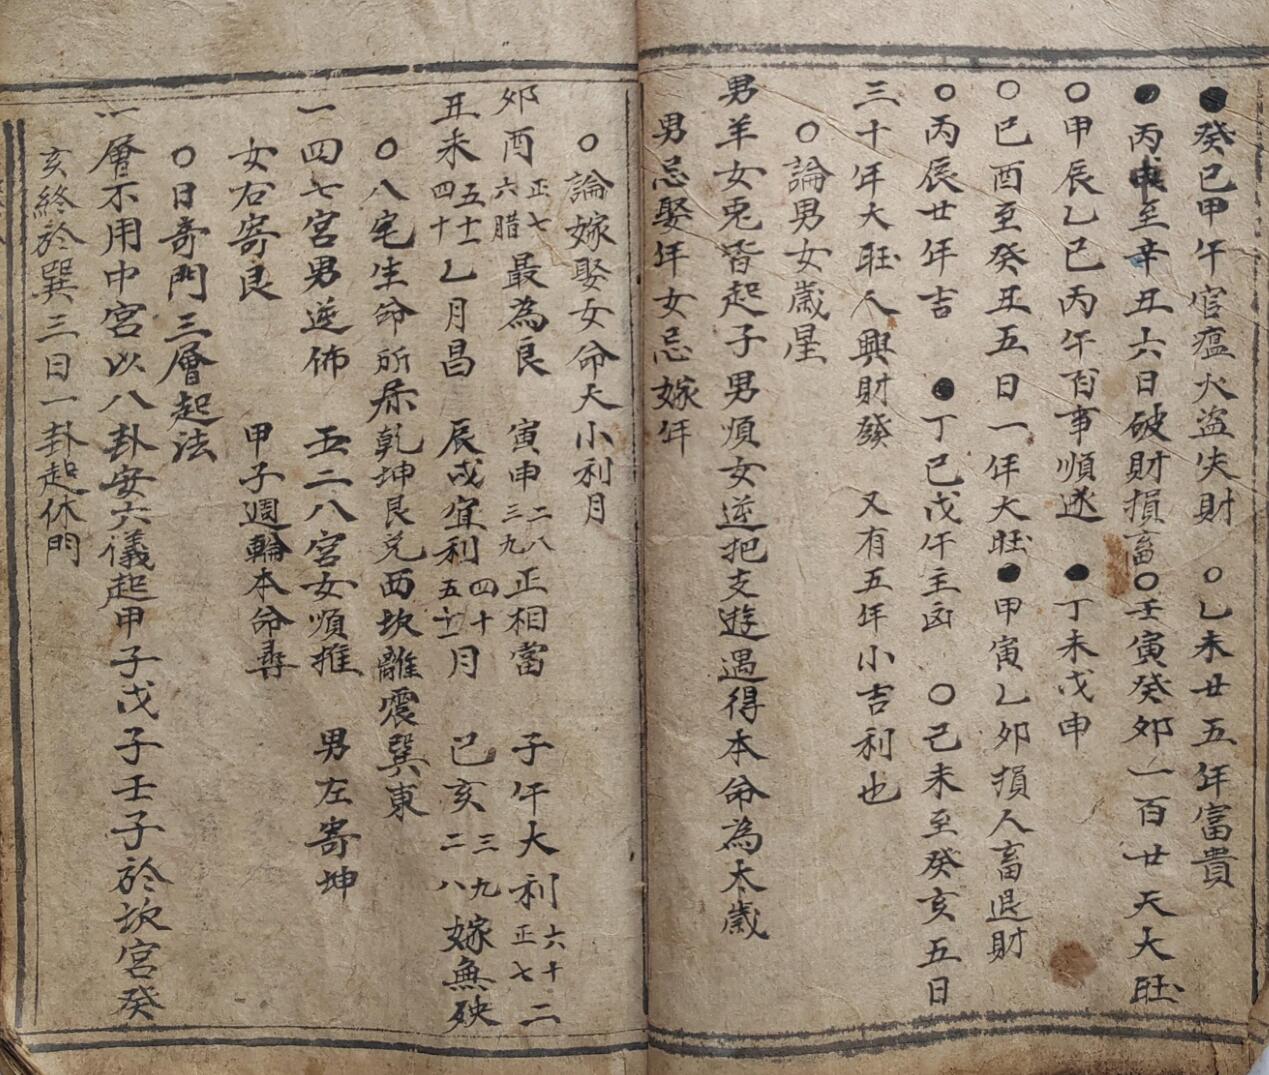 ●癸巳甲午官瘟火盗失財 ○乙未廿五年富貴
●丙申至辛丑六日破財損畜○壬寅癸卯一百廿天大旺
○甲辰乙巳丙午百事順遂 ●丁未戊申
○己酉至癸丑五日一年大旺●甲寅乙卯損人畜退財
○丙辰廿年吉 ●丁巳戊午主凶 ○己未至癸亥五日
三十年大旺人興財發 又有五年小吉利也
○論男女歲星
男羊女兎皆起子男順女逆把支遊遇得本命為太歲
男忌娶年女忌嫁年
○論嫁娶女命大小利月
卯酉正七六腊最為良 寅申二八三九正相當 子午大利六十二正七
丑未五十一四十乙月昌 辰戌宜利四十五十一月 巳亥三九二八嫁無殃
○八宅生命所屬乾坤艮兑西坎離震巽東
一四七宮男逆佈 五二八宮女順推 男左寄坤
女右寄艮 甲子週輪本命尋
○日奇門三層起法
一層不用中宮以八卦安六儀起甲子戊子壬子於坎宮癸
亥終於巽三日一卦起休門